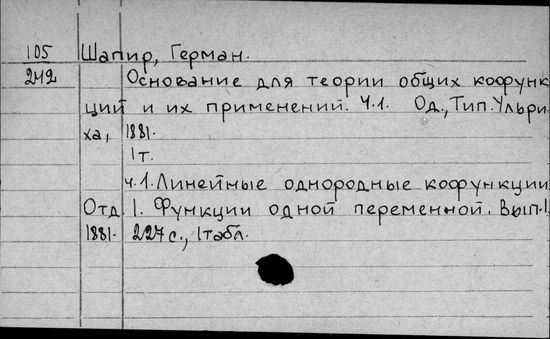 105 Шапир, Герман.
242 Основание для теории общих кофунк
ций и их применений. Ч.1. Од., Тип. Ульри
ха, 1881.
1т.
ч.1. Линейные однородные кофункции
Отд. 1. Функции одной переменной. Вып.1.
1881. 227 с., 1табл.